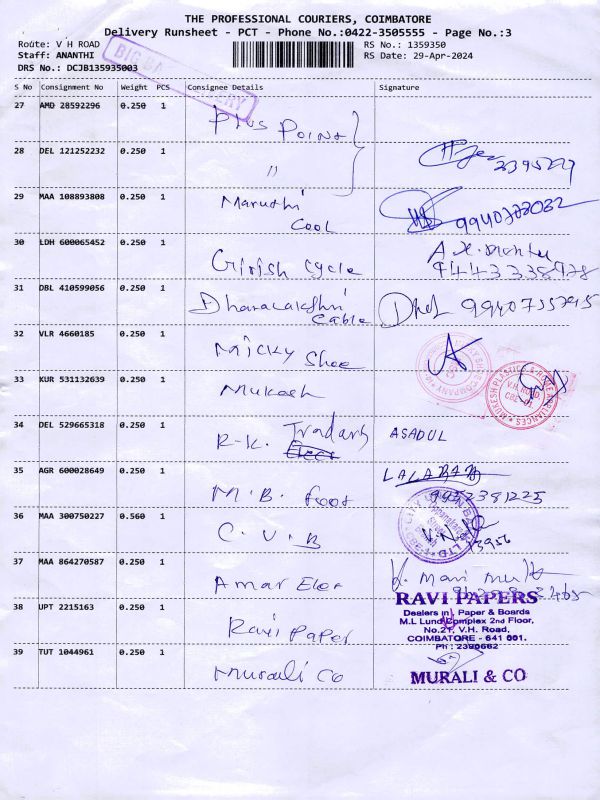 THE PROFESSIONAL COURIERS, COIMBATORE
Delivery Runsheet - PCT - Phone No.:0422-3505555 - Page No.:3
Route: V H ROAD
RS No.: 1359350
Staff: ANANTHI
RS Date: 29-Apr-2024
DRS No.: DCJB135935003
S No Consignment No Weight PCS Consignee Details Signature
27 AMD 28592296 0.250 1 Plus Point
28 DEL 121252232 0.250 1 "
29 MAA 108893808 0.250 1 Maruthi Cool
30 LDH 600065452 0.250 1 Girish Cycle
31 DBL 410599056 0.250 1 Dhanalakshmi Cable
32 VLR 4660185 0.250 1 Micky Shoe
33 KUR 531132639 0.250 1 Mukesh
MUKESH PLASTICS & APPLIANCES
V.H. ROAD
CBE-01
34 DEL 529665318 0.250 1 R-K. Traders ASADUL
35 AGR 600028649 0.250 1 M.B. Foot
9952381225
36 MAA 300750227 0.560 1 C.U.B
13956
37 MAA 864270587 0.250 1 Amar Elec
38 UPT 2215163 0.250 1 Ravi Paper
RAVI PAPERS
Dealers in Paper & Boards
M.L Lund Complex 2nd Floor,
No.21, V.H. Road,
COIMBATORE - 641 001.
Ph : 2390662
39 TUT 1044961 0.250 1 Murali Co
MURALI & CO